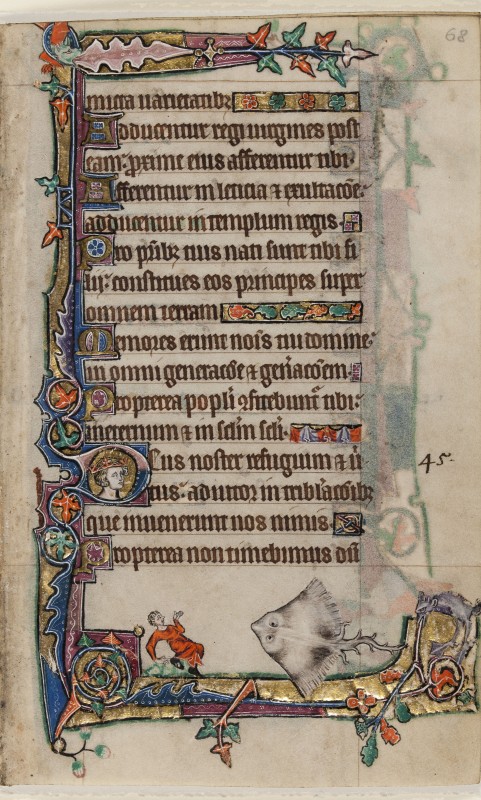 68
micta uarietatibꝫ
Adducentur regi uirgines post
eam: proxime eius afferentur tibi
Afferentur in leticia ⁊ exultacõe:
adducentur in templum regis.
Pro pr̃ibꝫ tuis nati sunt tibi fi
lij: constitues eos principes super
omnem terram
Memores erunt nõis tui domine:
in omni generacõe ⁊ gen̾acõem.
Propterea popl̓i ꝯfitebunt̾ tibi:
ineternum ⁊ in scl̃m scl̓i.
Deus noster refugium ⁊ ũ
tus: adiutor in tribl̓acõibꝫ
45.
que inuenerunt nos nimis.
Propterea non timebimus dũ